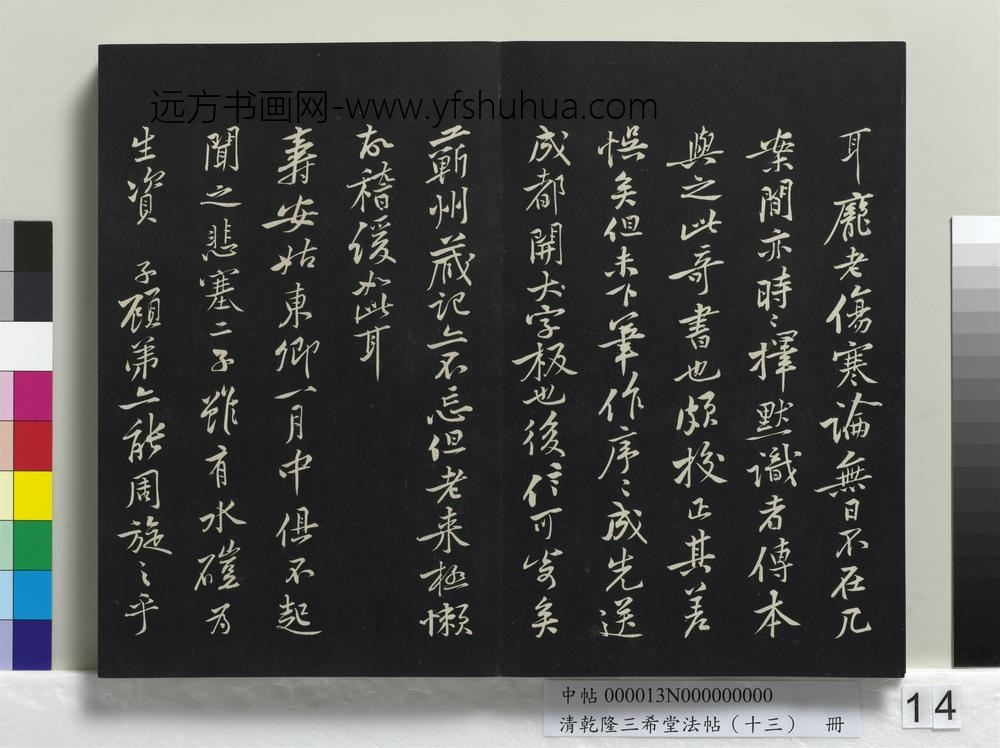 远方书画网-www.yfshuhua.com
耳龐老傷寒論無日不在几
案間亦時〻擇默識者傳本
與之此奇書也頗校正其差
悞矣但未下筆作序〻成先送
成都開大字板也後信可寄矣
蘄州藏記亦不忘但老來極懶
故稽緩如此耳
壽安姑東卿一月中俱不起
聞之悲塞二子雖有水磑為
生資 子顧弟亦能周旋之乎
中帖 000013N000000000
清乾隆三希堂法帖（十三） 冊
14